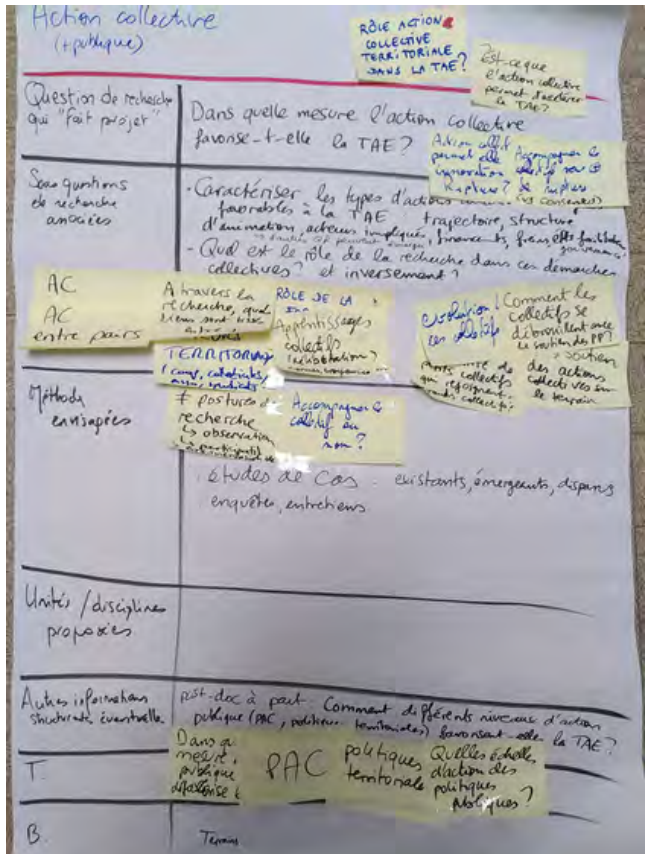 Action collective
(+ publique)
RÔLE ACTION
COLLECTIVE
TERRITORIALE
DANS LA TAE?
Est-ce que
l'action collective
permet d'accélérer
la TAE?
Question de recherche
qui "fait projet"
Dans quelle mesure l'action collective
favorise-t-elle la TAE ?
Action collect
permet elle
innovation
Rupture?
Accompagner
Sous questions
de recherche
associées
- Caractériser les types d'actions
favorables à la TAE trajectoire, structure
d'animation, acteurs impliqués, financeurs, freins
- Quel est le rôle de la recherche dans ces démarches
collectives? et inversement?
AC
AC
entre pairs
A travers la
recherche, quel
RÔLE DE LA
Apprentissages
collectifs
évolution!
ces collectifs
Comment les
collectifs se
débrouillent avec
le soutien des PP?
soutien
des actions
collectives sur
le terrain
de
collectifs
qui rejoignent
collectifs
TERRITORIA
Méthodes
envisagées
≠ postures de
recherche
↳ observation
Accompagner
collectif ou
non?
études de cas : existants, émergeants, disparus
enquêtes, entretiens
Unités / disciplines
proposées
Autres informations
structurantes éventuelle
post-doc à part. Comment différents niveaux d'action
publique (PAC, politiques territoriales) favorisent-elles la TAE?
Dans qu
mesure,
publique
PAC
politiques
territoriale
Quelles échelles
d'action des
politiques
publiques?
T.
B
Terrains